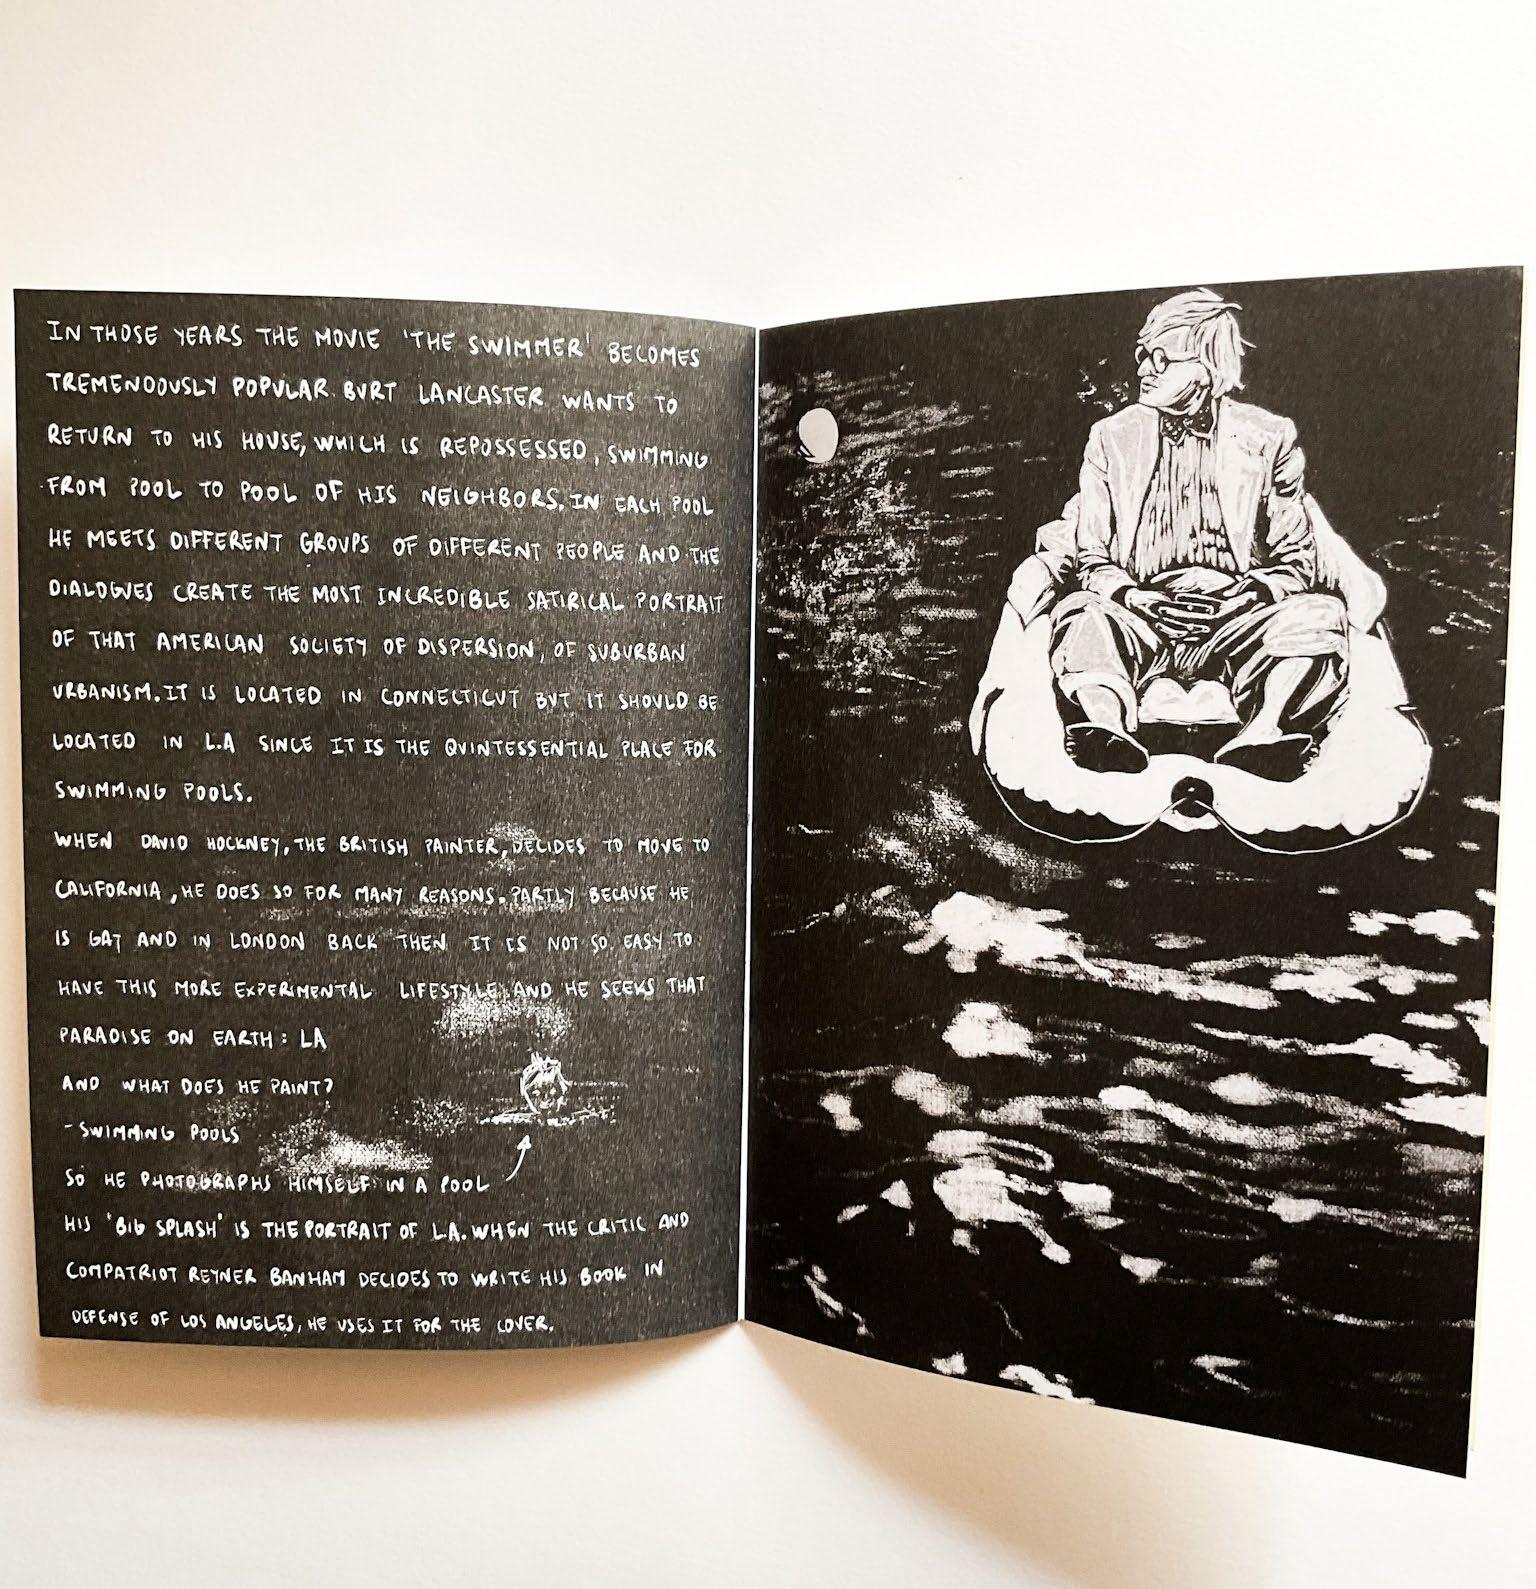 IN THOSE YEARS THE MOVIE 'THE SWIMMER' BECOMES
TREMENDOUSLY POPULAR. BURT LANCASTER WANTS TO
RETURN TO HIS HOUSE, WHICH IS REPOSSESSED, SWIMMING
FROM POOL TO POOL OF HIS NEIGHBORS. IN EACH POOL
HE MEETS DIFFERENT GROUPS OF DIFFERENT PEOPLE AND THE
DIALOGUES CREATE THE MOST INCREDIBLE SATIRICAL PORTRAIT
OF THAT AMERICAN SOCIETY OF DISPERSION, OF SUBURBAN
URBANISM. IT IS LOCATED IN CONNECTICUT BUT IT SHOULD BE
LOCATED IN L.A SINCE IT IS THE QUINTESSENTIAL PLACE FOR
SWIMMING POOLS.
WHEN DAVID HOCKNEY, THE BRITISH PAINTER, DECIDES TO MOVE TO
CALIFORNIA, HE DOES SO FOR MANY REASONS. PARTLY BECAUSE HE
IS GAY AND IN LONDON BACK THEN IT IS NOT SO EASY TO
HAVE THIS MORE EXPERIMENTAL LIFESTYLE AND HE SEEKS THAT
PARADISE ON EARTH: LA
AND WHAT DOES HE PAINT?
-SWIMMING POOLS
SO HE PHOTOGRAPHS HIMSELF IN A POOL
HIS 'BIG SPLASH' IS THE PORTRAIT OF L.A. WHEN THE CRITIC AND
COMPATRIOT REYNER BANHAM DECIDES TO WRITE HIS BOOK IN
DEFENSE OF LOS ANGELES, HE USES IT FOR THE COVER.